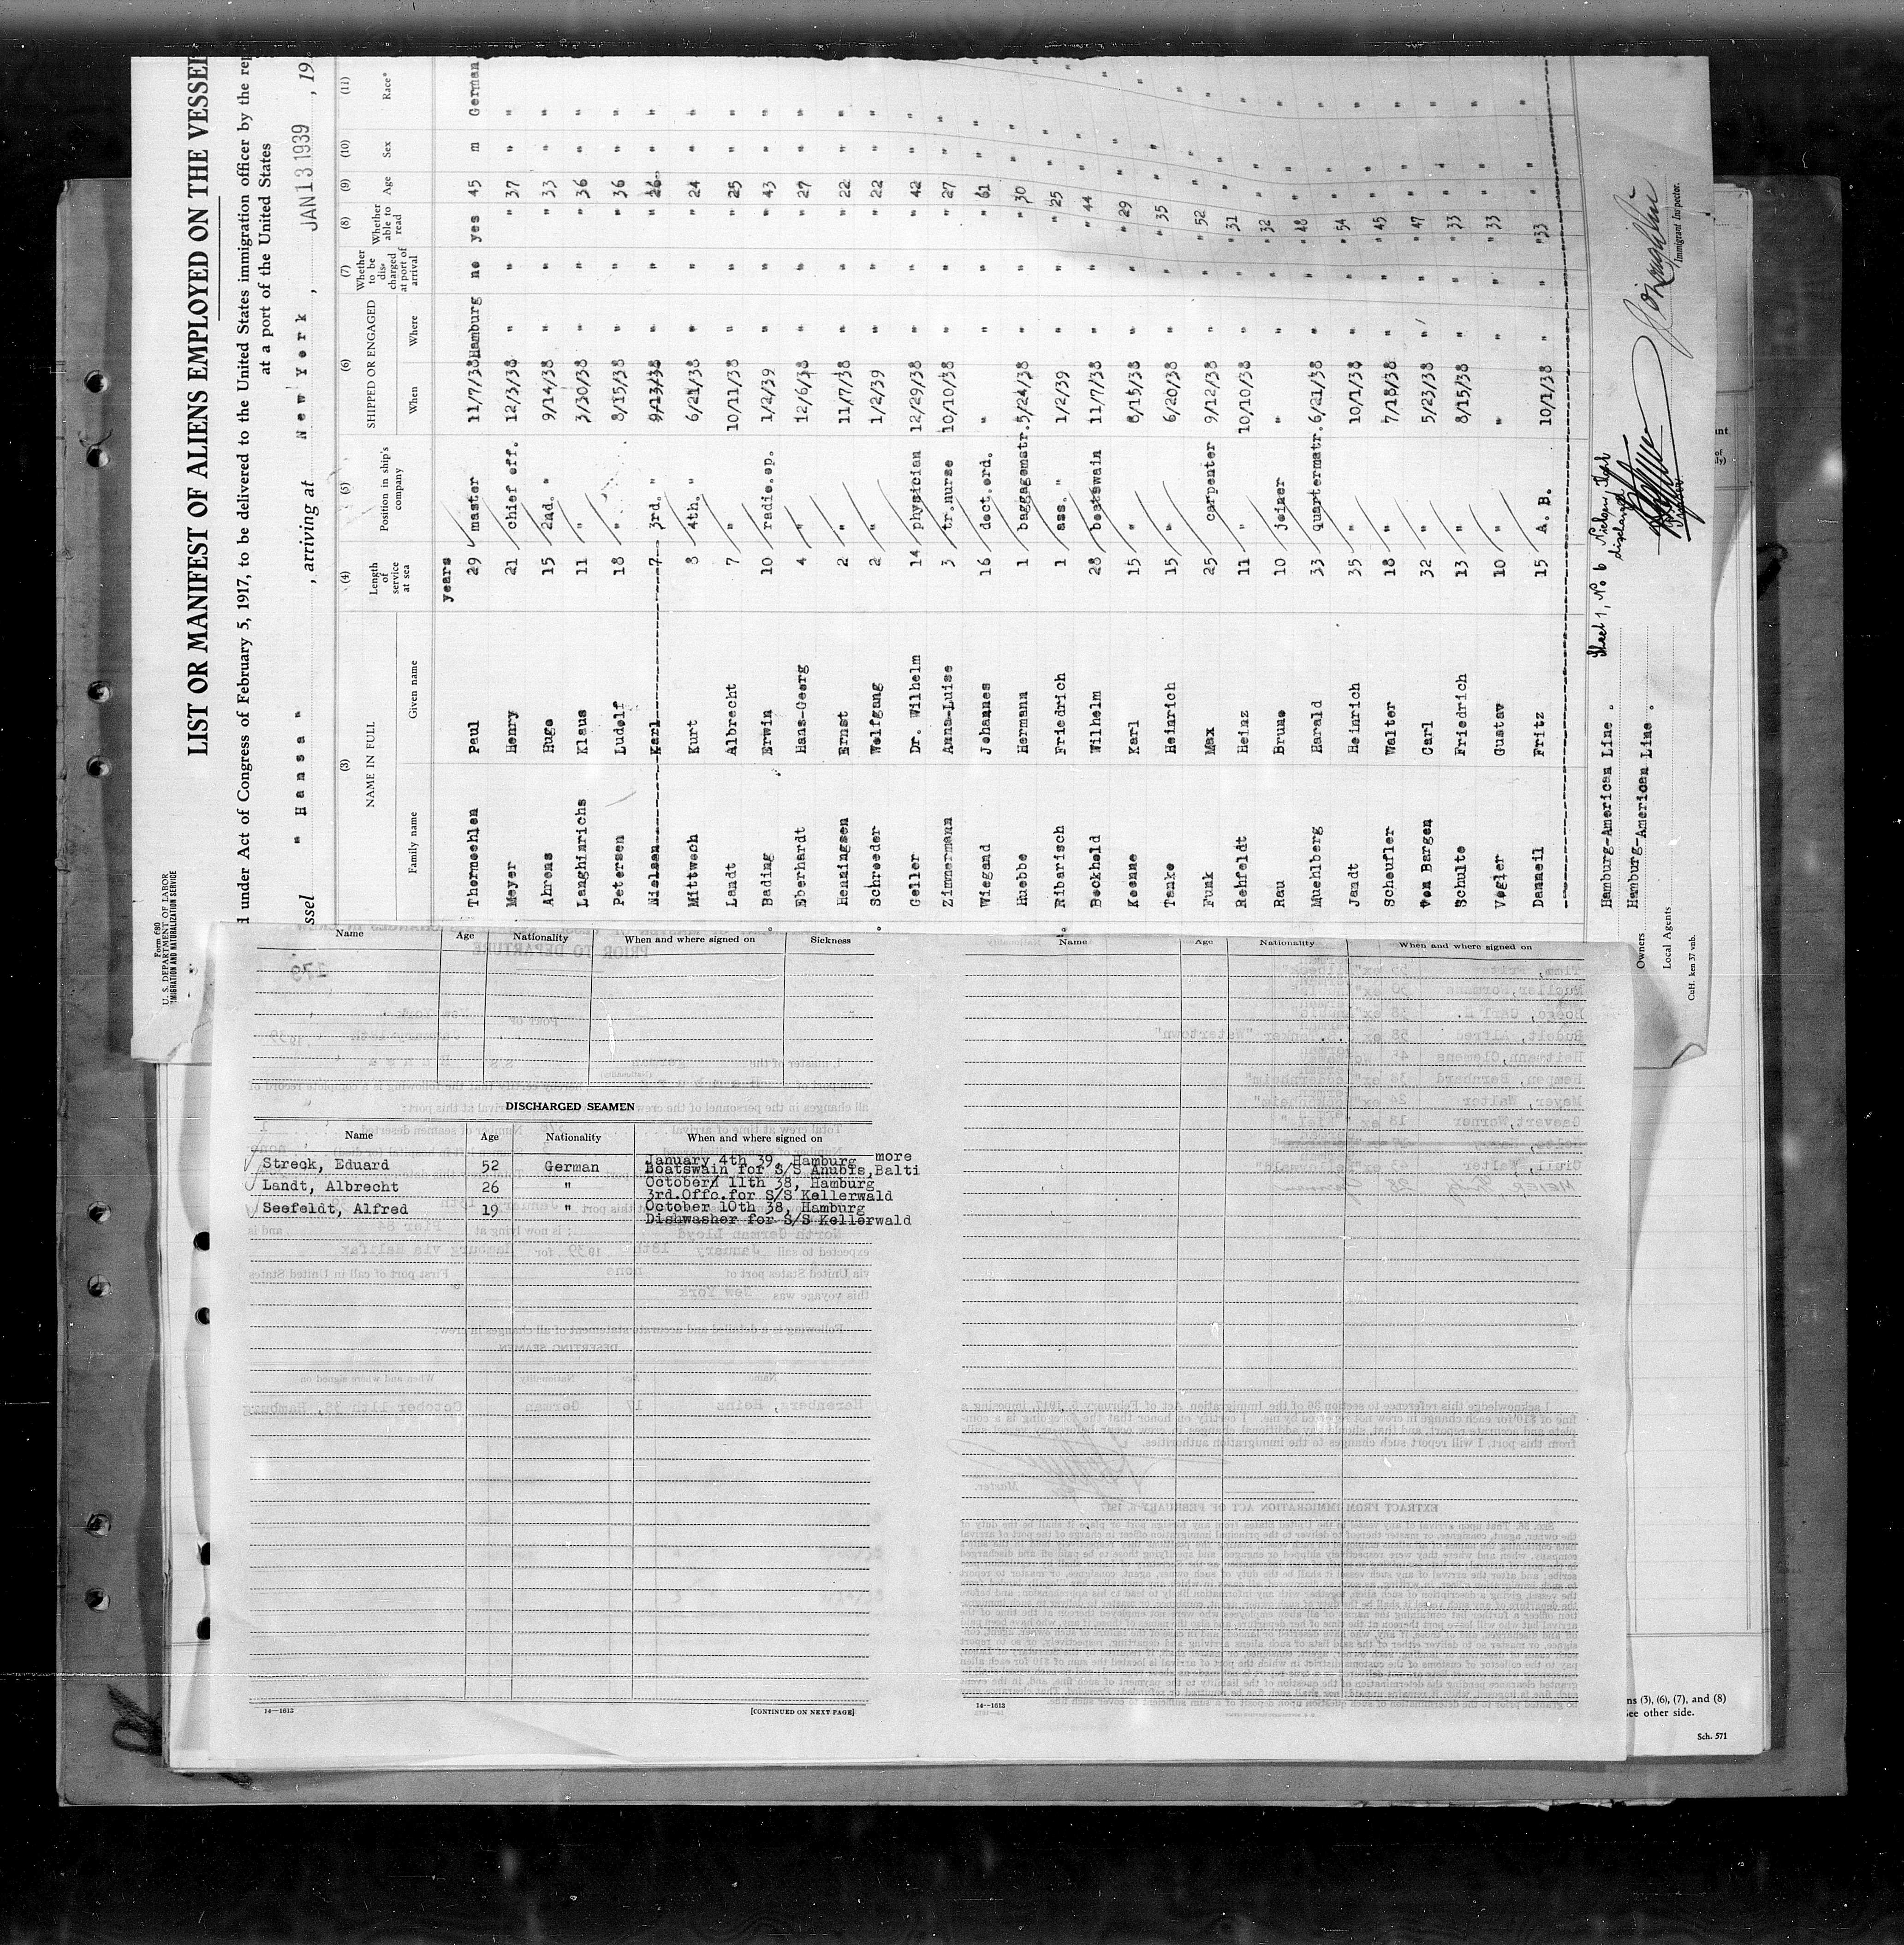 Form 680
U. S. DEPARTMENT OF LABOR
IMMIGRATION AND NATURALIZATION SERVICE
LIST OR MANIFEST OF ALIENS EMPLOYED ON THE VESSEL
d under Act of Congress of February 5, 1917, to be delivered to the United States immigration officer by the rep
at a port of the United States
ssel " Hansa " , arriving at New York , JAN 13 1939 , 19
(3) (4) (5) (6) (7) (8) (9) (10) (11)
NAME IN FULL Length of service at sea Position in ship's company SHIPPED OR ENGAGED Whether to be discharged at port of arrival Whether able to read Age Sex Race*
Family name Given name When Where
years
Thormoehlen Paul 29 master 11/7/38 Hamburg no yes 45 m German
Meyer Henry 21 chief off. 12/3/38 " " " 37 " "
Ahrens Hugo 15 2nd. " 9/14/38 " " " 33 " "
Langhinrichs Klaus 11 " 3/30/38 " " " 36 " "
Petersen Ludolf 18 " 8/15/38 " " " 36 " "
Nielsen Karl 7 3rd. " 9/13/38 " " " 26 " "
Mittwoch Kurt 8 4th. " 6/21/38 " " " 24 " "
Landt Albrecht 7 " 10/11/38 " " " 25 " "
Bading Erwin 10 radio.op. 1/2/39 " " " 43 " "
Eberhardt Hans-Georg 4 " 12/6/38 " " " 27 " "
Henningsen Ernst 2 " 11/7/38 " " " 22 " "
Schroeder Wolfgang 2 " 1/2/39 " " " 22 " "
Geller Dr. Wilhelm 14 physician 12/29/38 " " " 42 " "
Zimmermann Anna-Luise 3 tr.nurse 10/10/38 " " " 27 " "
Wiegand Johannes 16 doct.ord. " " " " 61 " "
Huebbe Hermann 1 baggagemstr. 5/24/38 " " " 30 " "
Ribarisch Friedrich 1 ass. " 1/2/39 " " " 25 " "
Beckhold Wilhelm 28 boatswain 11/7/38 " " " 44 " "
Koenne Karl 15 " 8/15/38 " " " 29 " "
Tanke Heinrich 15 " 6/20/38 " " " 35 " "
Funk Max 25 carpenter 9/12/38 " " " 52 " "
Rehfeldt Heinz 11 " 10/10/38 " " " 31 " "
Rau Bruno 10 joiner " " " " 32 " "
Muehlberg Harald 33 quartermstr. 6/21/38 " " " 48 " "
Jandt Heinrich 35 " 10/1/38 " " " 54 " "
Scheufler Walter 18 " 7/18/38 " " " 45 " "
von Bargen Carl 32 " 5/23/38 " " " 47 " "
Schulte Friedrich 13 " 8/15/38 " " " 33 " "
Vogler Gustav 10 " " " " " 33 " "
Danneil Fritz 15 A. B. 10/1/38 " " " 33 " "
Sheet 1, No 6 Nielsen, Karl
discharged
Hamburg-American Line .
Owners Hamburg-American Line .
Local Agents
Immigrant Inspector.
CuH. ken 37 vnb.
Name Age Nationality When and where signed on Sickness
DISCHARGED SEAMEN
Name Age Nationality When and where signed on
Streck, Eduard 52 German January 4th 39, Hamburg more
Boatswain for S/S Anubis,Balti
Landt, Albrecht 26 " October 11th 38, Hamburg
3rd.Offc.for S/S Kellerwald
Seefeldt, Alfred 19 " October 10th 38, Hamburg
Dishwasher for S/S Kellerwald
14—1613
[CONTINUED ON NEXT PAGE]
Name Age Nationality When and where signed on
14—1613
ns (3), (6), (7), and (8)
see other side.
Sch. 571